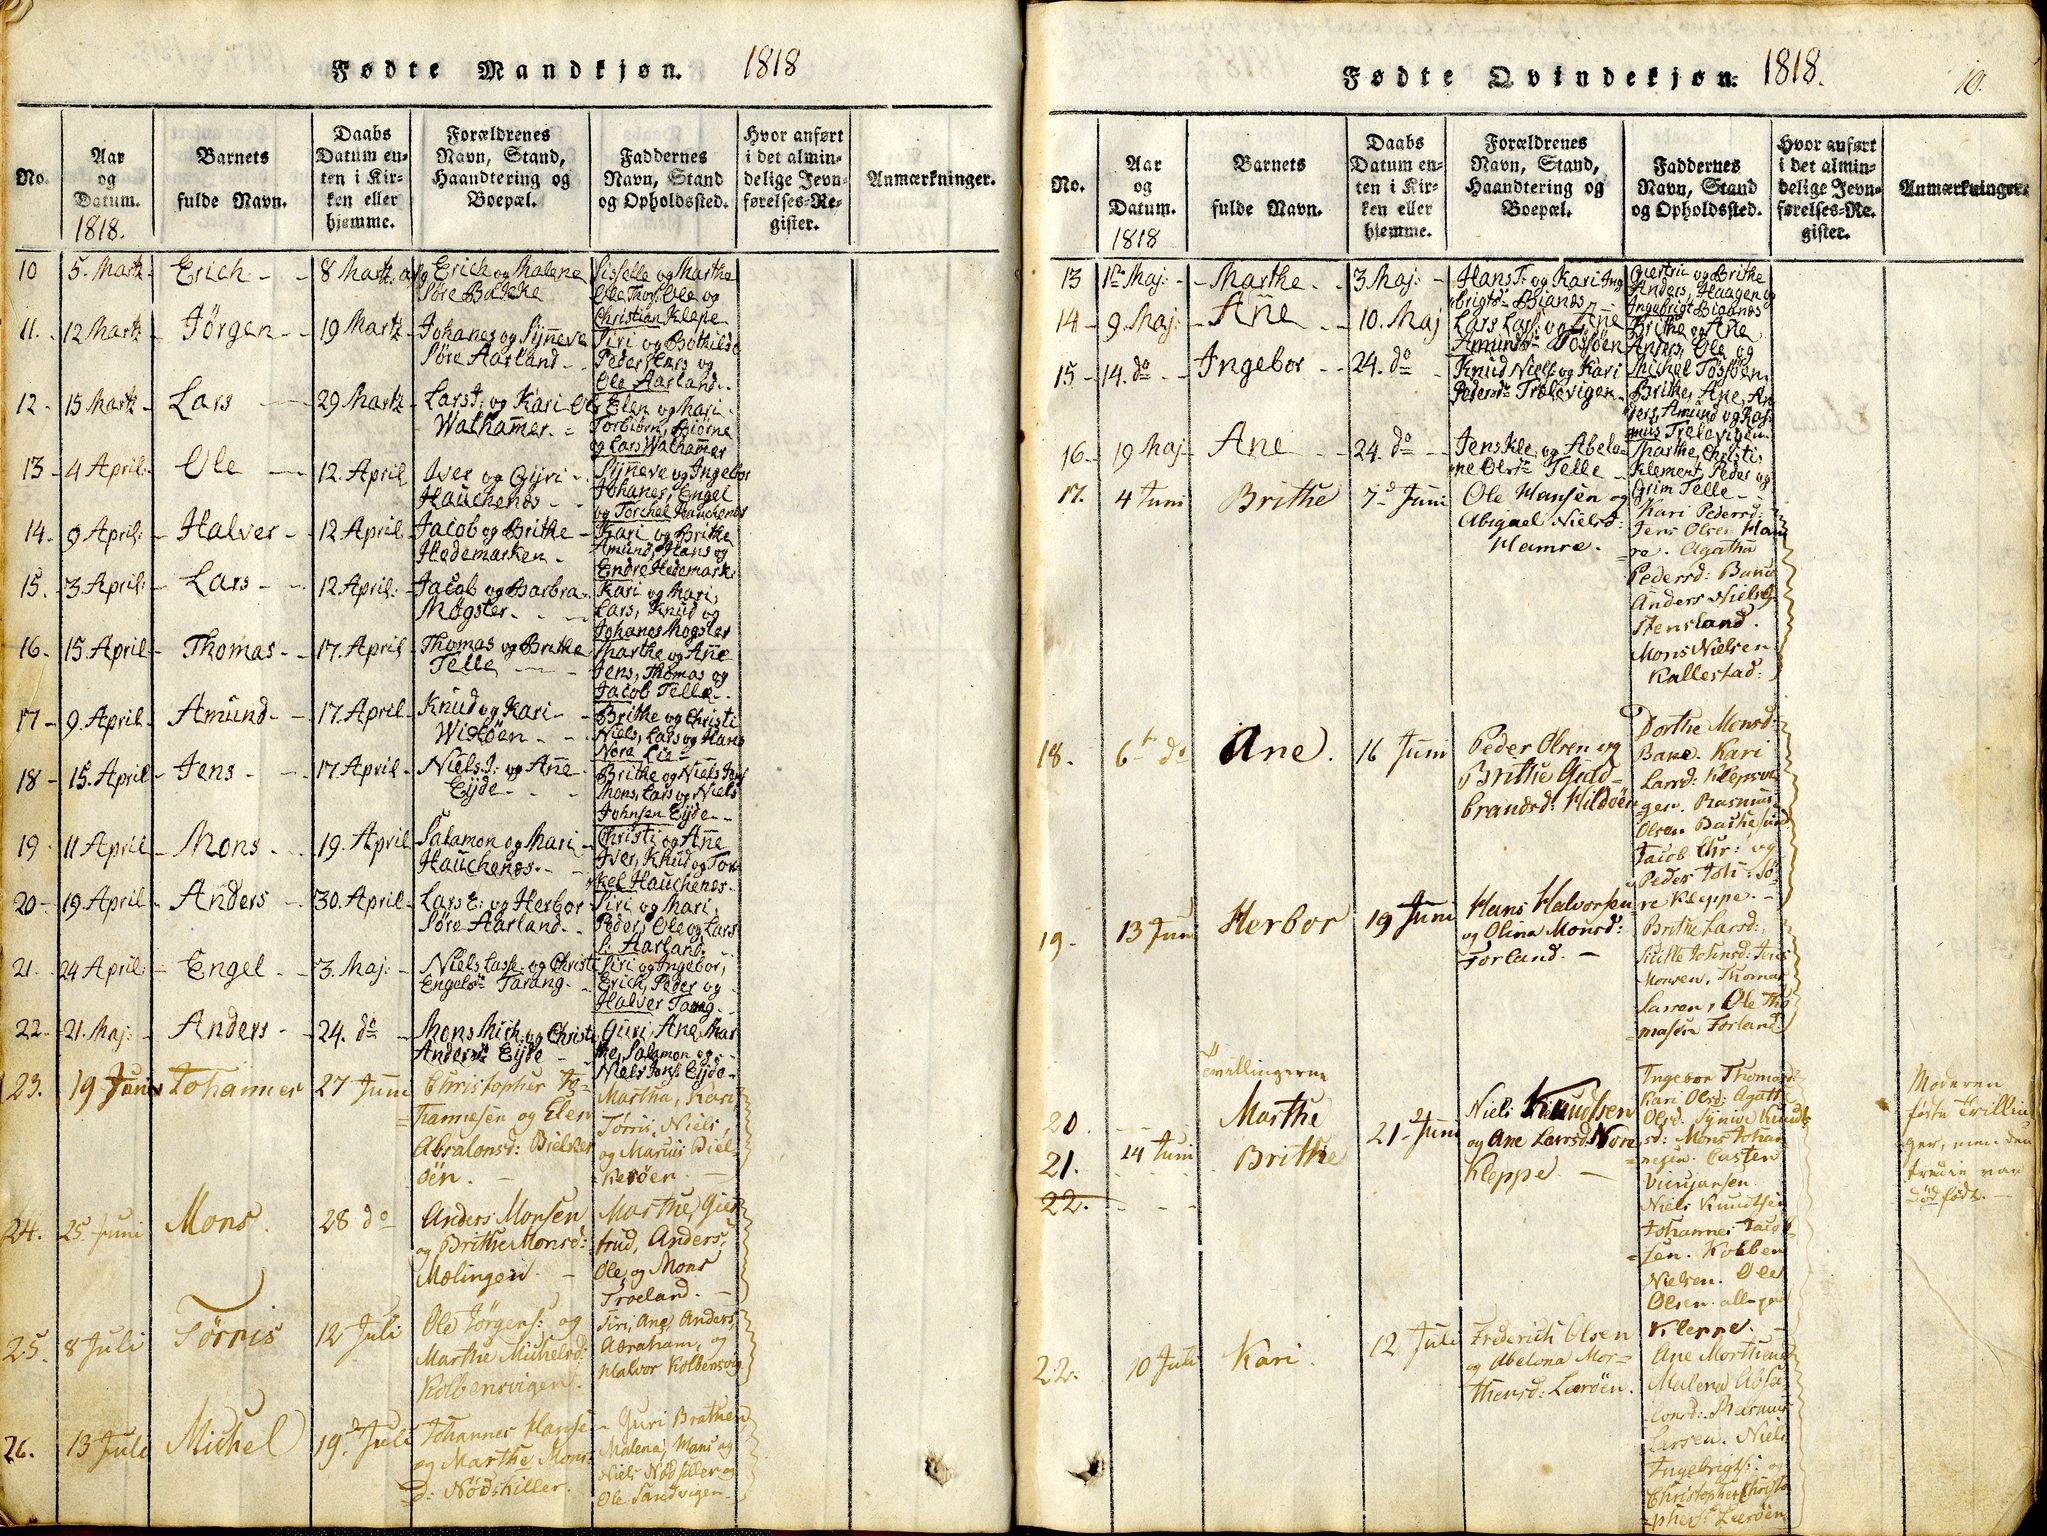 Fødte Mandkjøn. 1818
No.
Aar
og
Datum.
1818.
Barnets
fulde Navn.
Daabs
Datum en-
ten i Kir-
ken eller
hjemme.
Forældrenes
Navn, Stand,
Haandtering og
Boepæl.
Faddernes
Navn, Stand
og Opholdssted.
Hvor anført
i det almin-
delige Jevn-
førelses-Re-
gister.
Anmærkninger.
10 5. Martz Erich 8 Martz Erich og Malene
Søre Bakke
Sisselle og Marthe
Ole Thors. Ole og
Christian Kleppe
11. 12 Martz Jørgen 19 Martz Johanes og Syneve
Søre Aarland
Siri og Bothilde
Peder, Lars og
Ole Aarland
12. 15 Martz Lars 29 Martz Lars J: og Kari Ols
Walhamer.
Elen og Mari
Torbiørn, Biørne
og Lars Walhamer
13 4 April: Ole 12. April Iver og Gyri
Hauchenes
Syneve og Ingebor
Johanes, Engel
og Torchel Hauchenes
14. 9 April: Halver 12 April Jacob og Brithe
Hedemarken
Kari og Brithe
Amund, Hans og
Endre Hedemark:
15. 3 April: Lars 12 April: Jacob og Barbra
Møgster.
Kari og Mari,
Lars, Knud og
Johanes Mogster
16. 15. April Thomas 17. April Thomas og Brithe
Telle
Marthe og Ane
Jens, Thomas og
Jacob Telle
17 9. April Amund 17. April Knud og Kari
Wistøen
Brithe og Christi
Niels, Lars og Hans
Nore Lie
18 15. April Jens 17 April Niels J: og Ane
Eyde
Brithe og Niels Jens
Mons, Lars og Niels
Johnsen Eyde
19 11 April Mons 19. April Salamon og Mari
Hauchenes.
Christi og Ane
Iver, Knud og Tor-
kel Hauchenes.
20 19. April Anders 30. April Lars E: og Herbor
Søre Aarland.
Siri og Mari,
Peder, Ole og Lars
S: Aarland.
21. 24 April: Engel 3. Maj: Niels Lasse: og Christi
Engelsdr Tarang.
Siri og Ingebor,
Erich, Peder og
Halver Tarang
22. 21. Maj: Anders 24. do Mons Mich: og Christi
Andersdr Eyde
Guri, Ane, Mar
the, Salamon og
Niels Jons: Eyde
23. 19 Juni Johannes 27 Juni Christopher Jo-
hannesen og Elen
Absalonsd: Bielker
öen.
Martha, Kari,
Torris, Niels,
og Marius Biel-
kerøen.
24. 25 Juni Mons. 28 do Anders Monsen
og Brithe Monsd:
Mølingen.
Marthe, Gier
trud, Anders,
Ole, og Mons
Troeland.
25. 8 Juli Törris 12 Juli Ole Jörgens: og
Marthe Michelsd:
Kolbensvigen.
Siri, Ane, Anders,
Abraham, og
Halvor Kolbensvig
26. 13 Juli Michel 19. Juli Johannes Hanse
og Marthe Mons-
d: Nödskiller.
Guri Brathen
Malena, Mons og
Niels Nödskiller og
Ole Sandvigen.
Fødte Qvindekjøn. 1818. 10.
No.
Aar
og
Datum.
1818
Barnets
fulde Navn.
Daabs
Datum en-
ten i Kir-
ken eller
hjemme.
Forældrenes
Navn, Stand,
Haandtering og
Boepæl.
Faddernes
Navn, Stand
og Opholdssted.
Hvor anført
i det almin-
delige Jevn-
førelses-Re-
gister.
Anmærkninger.
13 1te Maj: Marthe 3 Maj: Hans J: og Kari Ing
brigtsd Bianes
Giertru og Brithe
Anders, Haagen og
Ingebrigt Biabnes
14 9. Maj: Ane 10. Maj Lars Lars: og Ane
Amundsd Tossöen
Brithe og Ane
Anders, Ole og
Michel Tossöen.
15 14. do Ingebor 24. do Knud Niels: og Kari
Pedersdr Trælevigen
Brithe, Ane, An
ders, Amund og Ras
mus Trelevigen
16 19 Maj Ane 24. do Jens Kle: og Abelo
ne Olsdr Telle
Marthe, Christi,
Klement, Peder og
Grim Telle
17. 4 Juni Brithe 7d Juni Ole Hansen og
Abigael Nielsd:
Hamre.
Kari Pedersd:
Jens Olsen Ham
re. Agatha
Pedersd: Bane
Anders Niels:
Stensland.
Mons Nielsen
Kallestad:
18. 6te do Ane. 16 Juni Peder Olsen og
Brithe Guld-
brandsd: Hildöen
Dorthe Monsd
Bane. Kari
Larsd: Klepsvi
gen. Rasmus
Olsen Bathesund
Jacob Chr: og
Peder Joh: Sö-
re Kleppe.
19. 13 Juni Herbor 19 Juni Hans Halvorsen
og Olina Monsd:
Forland.
Brithe Larsd:,
Sitille Johnsd: Jens
Monsen, Thomas
Larsen, Ole Tho
masen Forland.
Tvillingerne
20. Marthe
21. 14 Juni Brithe 21. Juni Niels Knudsen
og Ane Larsd: Nore
Kleppe.
22.
Ingebor Thomasd:
Kari Olsd: Agathe
Olsd. Synive Knuds
sd: Mons Johan
nesen. Casten
Niels Knudsen
Johannes Jacob
sen. Kolben
Nielsen. Ole
Olsen alle paa
Kleppe.
Moderen
fødte Trillin
ger, men den
tredie var
dødfødt.
22. 10 Juli Kari. 12 Juli Frederich Olsen
og Abelona Mor-
thensd: Lærøen.
Ane Morthensd
Malena Absa-
lonsd: Rasmus
Larsen. Niels
Ingebrigts: og
Christopher Christo
phers: Lærøen